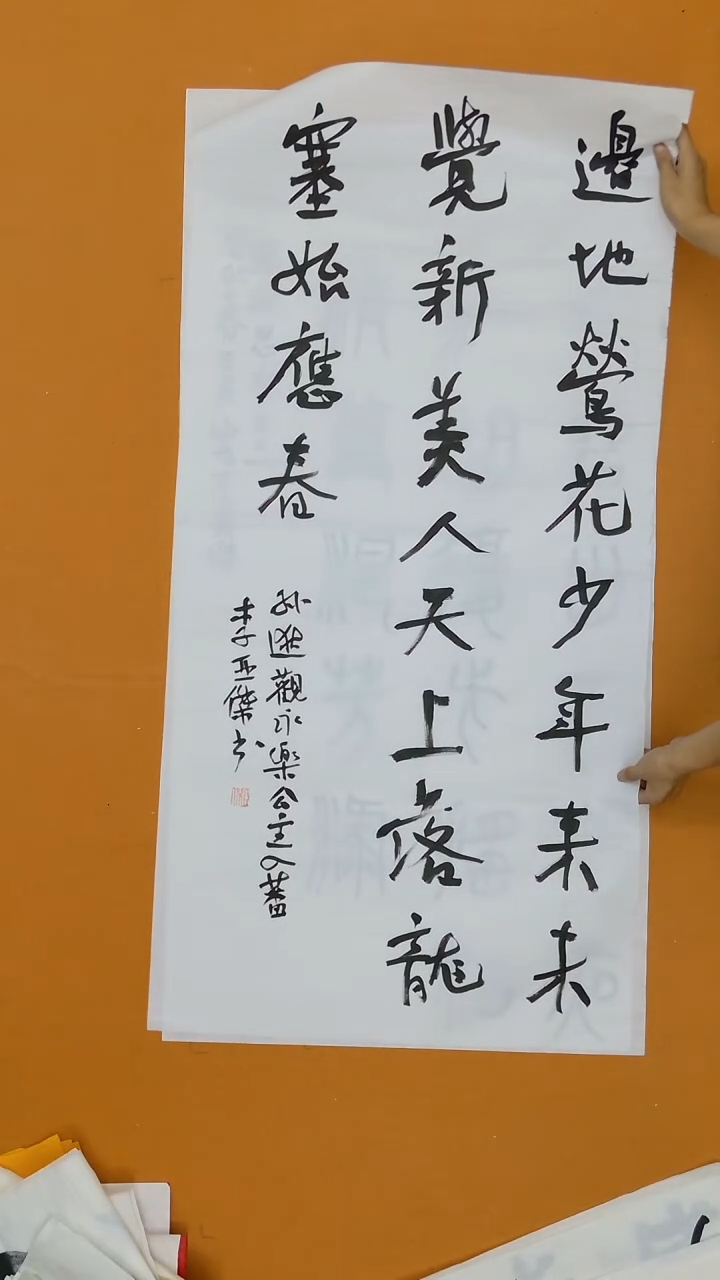 邊地鶯花少年來未
覺新美人天上落龍
塞始應春
孫逖觀永樂公主入蕃
李亞傑书